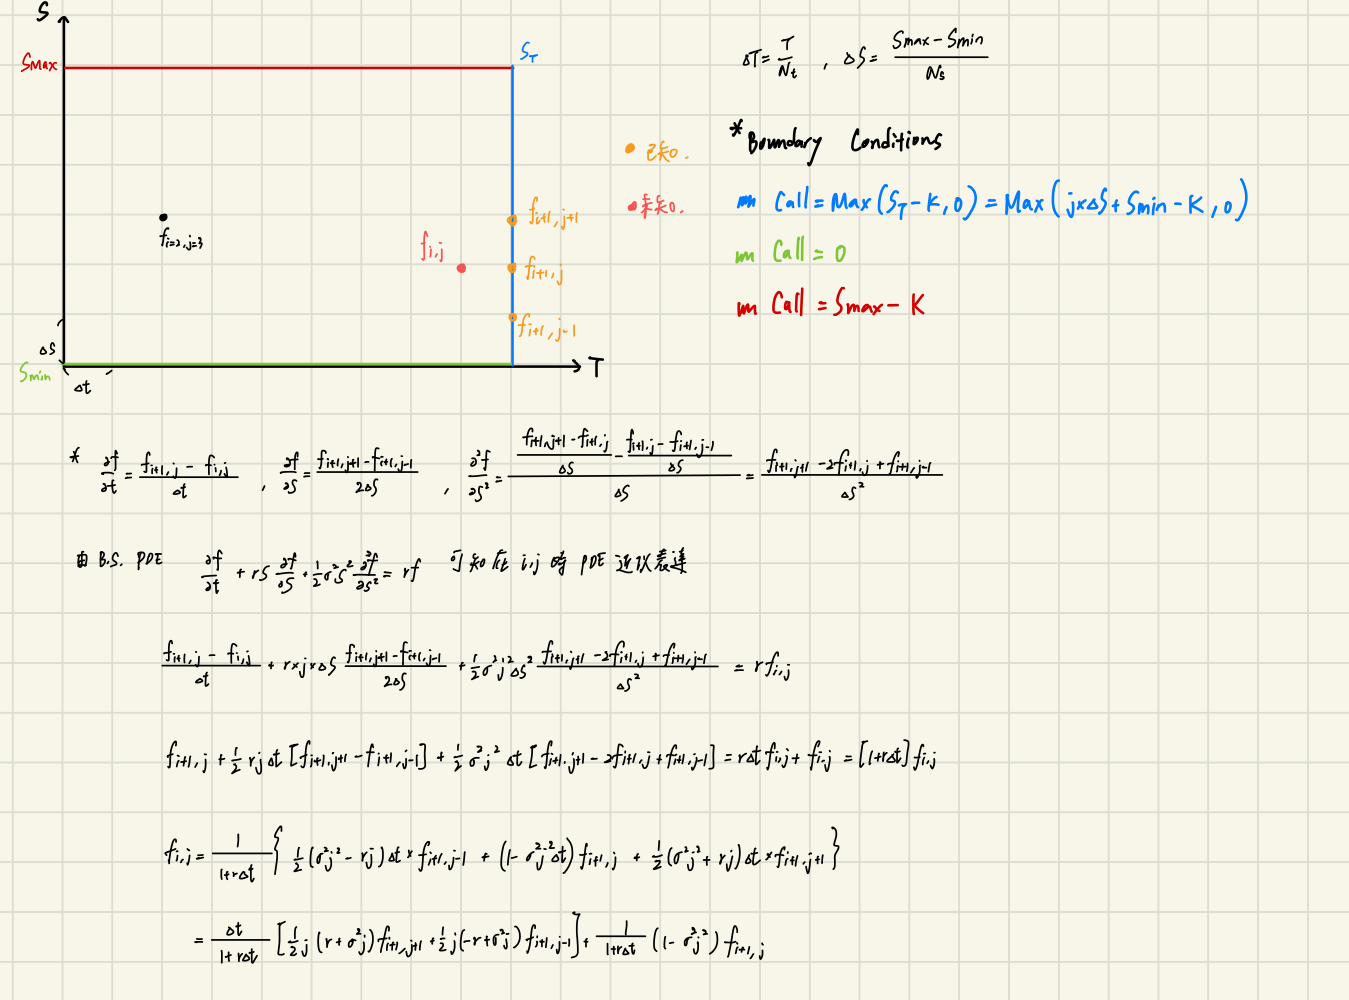 S
Smax
S_T
f_{i=2, j=3}
f_{i,j}
f_{i+1, j+1}
f_{i+1, j}
f_{i+1, j-1}
ΔS
Smin
Δt
T
已知.
未知.
ΔT = T/N_t , ΔS = (Smax - Smin)/N_s
* Boundary Conditions
Call = Max(S_T - K, 0) = Max(j×ΔS + Smin - K, 0)
Call = 0
Call = Smax - K
* ∂f/∂t = (f_{i+1,j} - f_{i,j})/Δt , ∂f/∂S = (f_{i+1,j+1} - f_{i+1,j-1})/2ΔS , ∂²f/∂S² = ((f_{i+1,j+1} - f_{i+1,j})/ΔS - (f_{i+1,j} - f_{i+1,j-1})/ΔS)/ΔS = (f_{i+1,j+1} - 2f_{i+1,j} + f_{i+1,j-1})/ΔS²
由 B.S. PDE ∂f/∂t + rS ∂f/∂S + 1/2 σ²S² ∂²f/∂S² = rf 可知在 i,j 時 PDE 近似表達
(f_{i+1,j} - f_{i,j})/Δt + r×j×ΔS (f_{i+1,j+1} - f_{i+1,j-1})/2ΔS + 1/2 σ²j²ΔS² (f_{i+1,j+1} - 2f_{i+1,j} + f_{i+1,j-1})/ΔS² = rf_{i,j}
f_{i+1,j} + 1/2 rjΔt [f_{i+1,j+1} - f_{i+1,j-1}] + 1/2 σ²j² Δt [f_{i+1,j+1} - 2f_{i+1,j} + f_{i+1,j-1}] = rΔt f_{i,j} + f_{i,j} = [1+rΔt] f_{i,j}
f_{i,j} = 1/(1+rΔt) { 1/2 (σ²j² - rj) Δt × f_{i+1,j-1} + (1 - σ²j²Δt) f_{i+1,j} + 1/2 (σ²j² + rj) Δt × f_{i+1,j+1} }
= Δt/(1+rΔt) [1/2 j (r + σ²j) f_{i+1,j+1} + 1/2 j (-r + σ²j) f_{i+1,j-1}] + 1/(1+rΔt) (1 - σ²j²) f_{i+1,j}